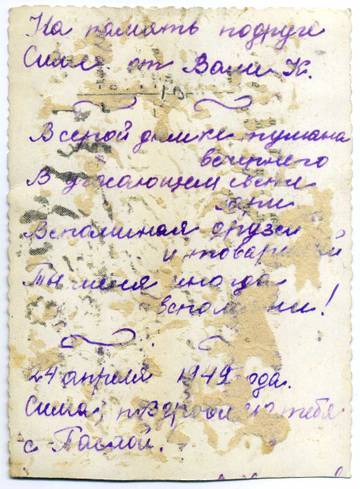 На память подруге
Симе от Вали К.
В серой дымке тумана
вечернего
В угасающем свете
зари
Вспоминая друзей
и товарищей
Ты меня иногда
вспомяни!
24 апреля 1949 года.
Сима, поздравляю тебя
с Пасхой.